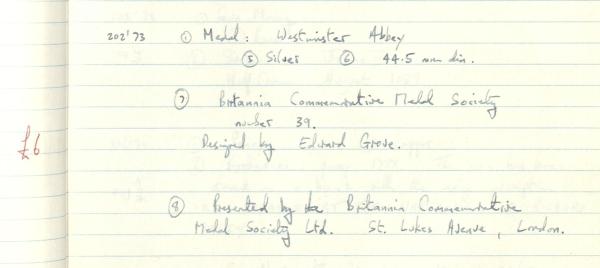 202'73 ① Medal: Westminster Abbey
⑤ Silver ⑥ 44.5 mm dia.
⑦ Britannia Commemorative Medal Society
number 39.
£6
Designed by Edward Grove.
⑧ Presented by the Britannia Commemorative
Medal Society Ltd. St. Lukes Avenue, London.